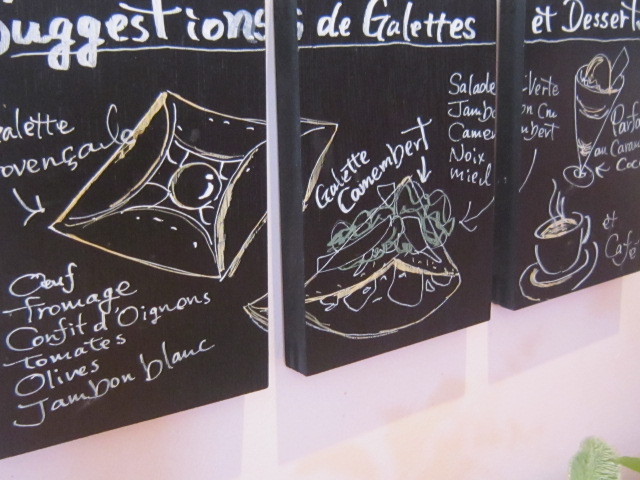 Suggestions de Galettes et Dessert
Galette
Provençale
Oeuf
fromage
Confit d'Oignons
Tomates
Olives
Jambon blanc
Galette
Camembert
Salade Verte
Jambon Cru
Camembert
Noix
miel
Parfait
au Caram
Coco
et
Café